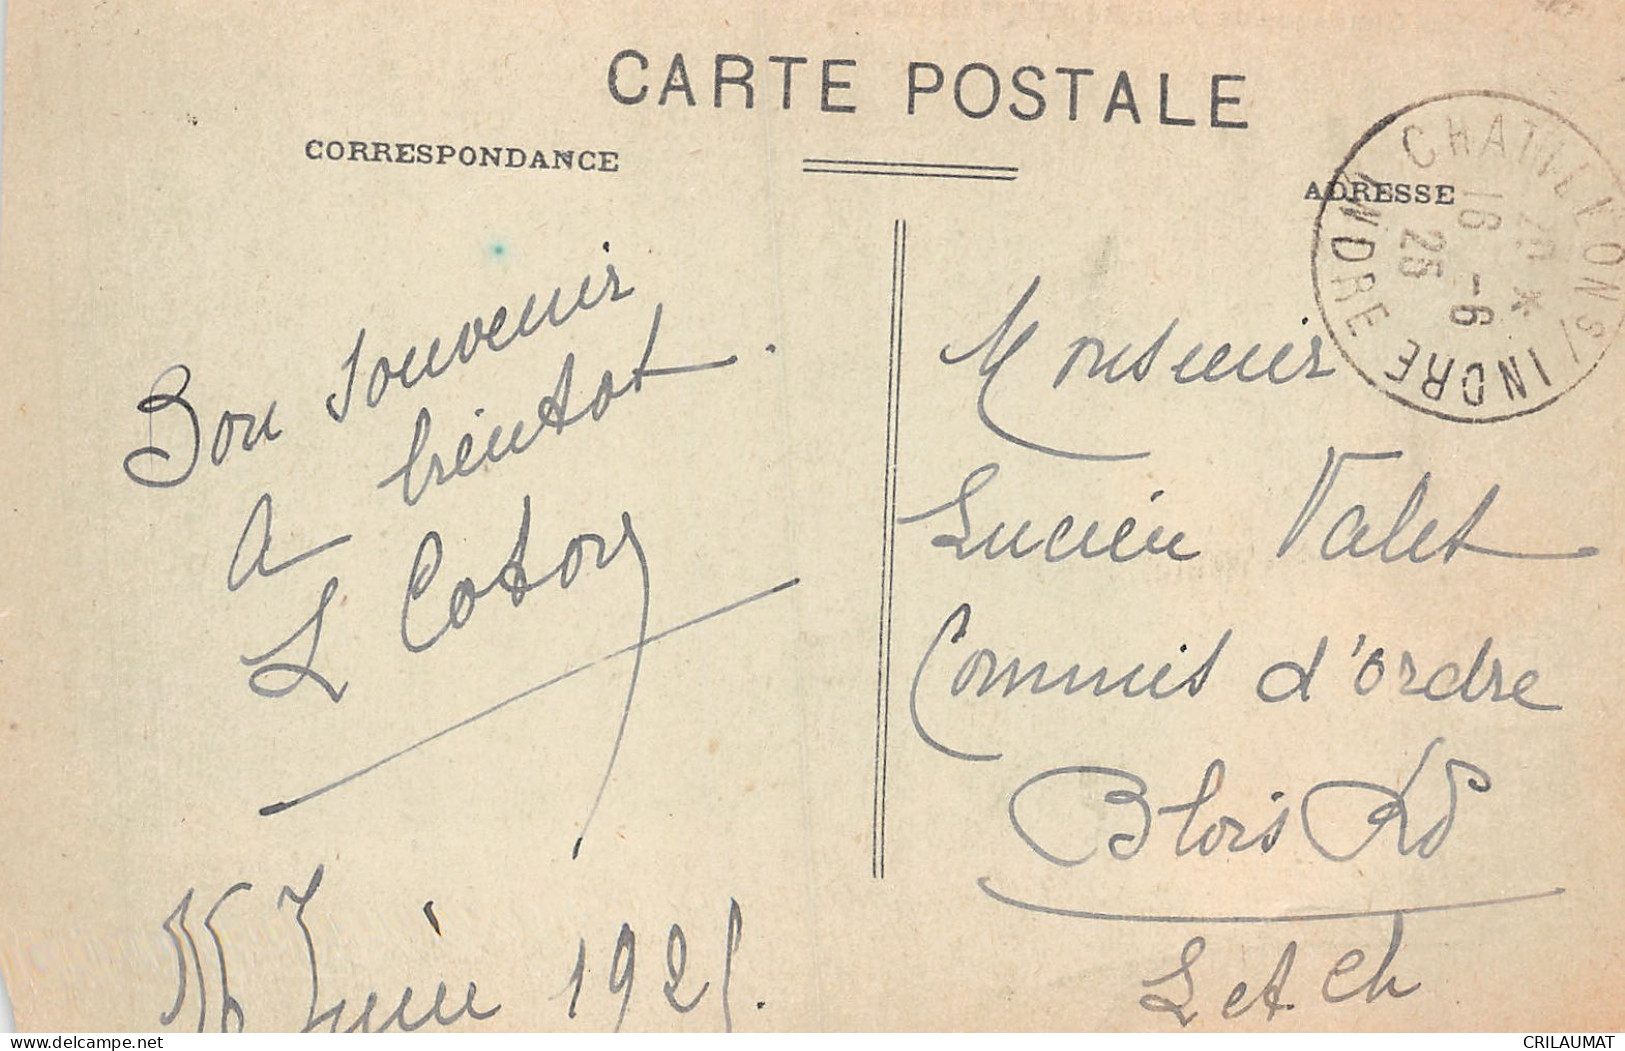 CARTE POSTALE
CORRESPONDANCE
ADRESSE
CHATILLON S/ INDRE
INDRE
16 -6
25
Bon souvenir
a bientot.
L
Monsieur
Lucien Valet
Commis d'ordre
Blois
L et Ch
16 Juin 1925.
delcampe.net
CRILAUMAT